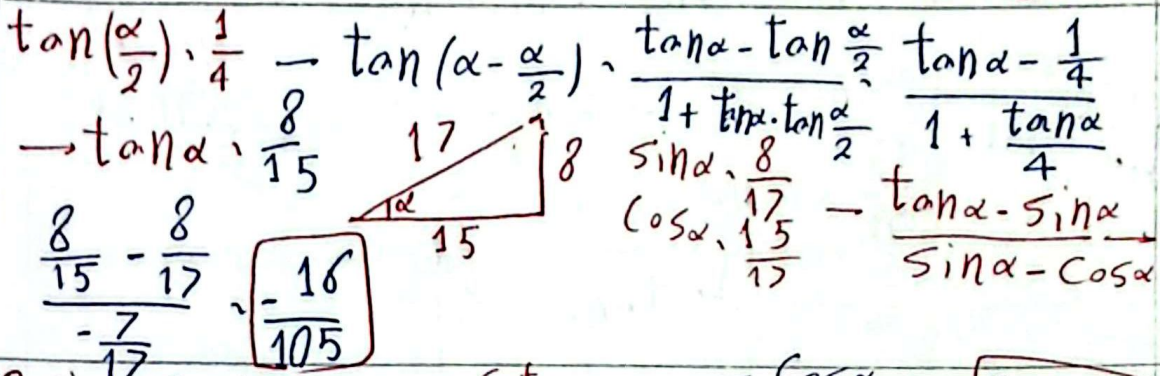 tan(α/2) = 1/4 → tan(α - α/2) = (tanα - tan α/2)/(1 + tanα·tan α/2) = (tanα - 1/4)/(1 + tanα/4)
→ tanα = 8/15
17
8
α
15
sinα = 8/17
cosα = 15/17 → (tanα - sinα)/(sinα - cosα) →
(8/15 - 8/17)/(-7/17) = -16/105